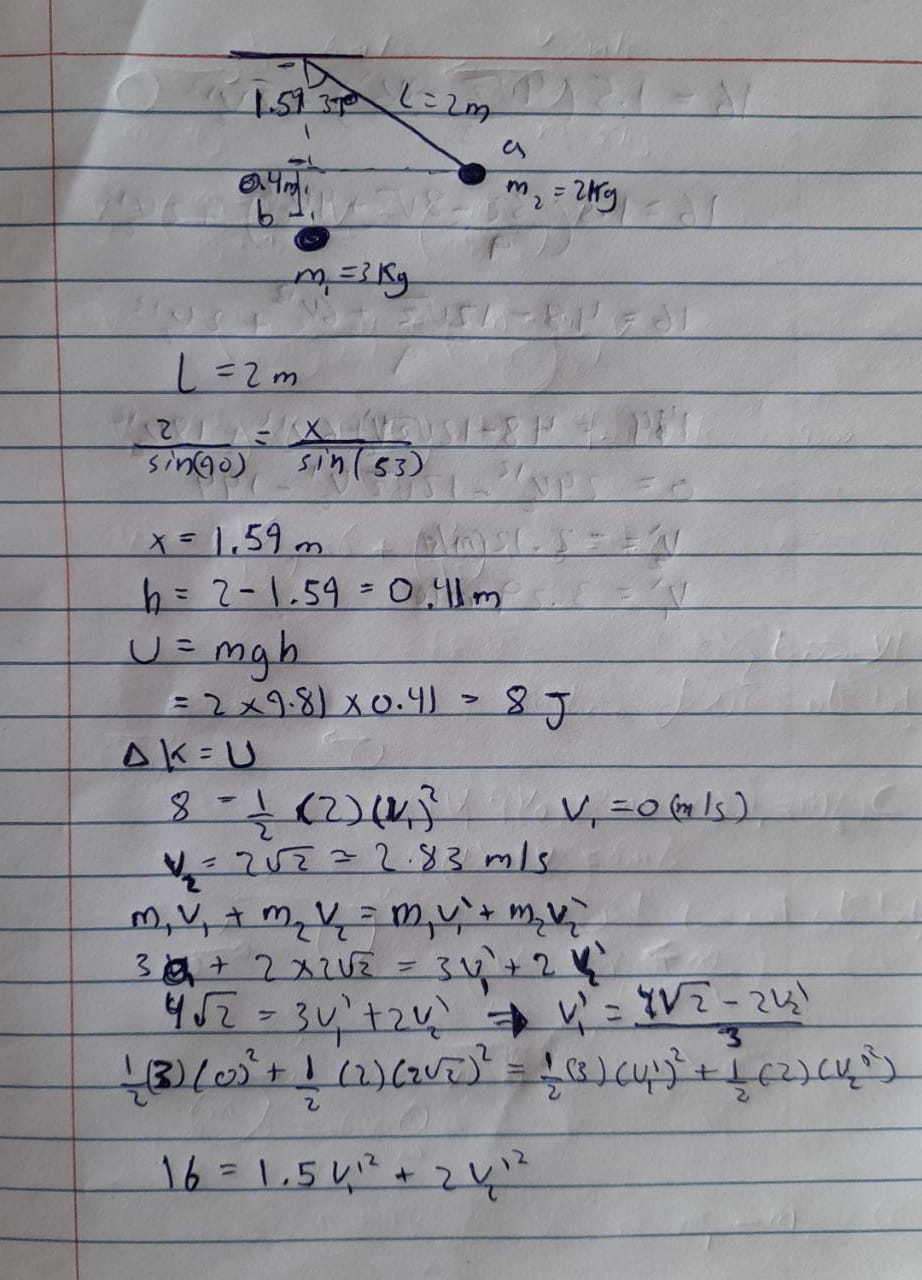 1.59 37° L = 2m
a
0.4m
m₂ = 2Kg
b
m₁ = 3Kg
L = 2m
2/sin(90) = x/sin(53)
x = 1.59 m
h = 2 - 1.59 = 0.41m
U = mgh
= 2 x 9.81 x 0.41 = 8 J
ΔK = U
8 = 1/2 (2)(V₁)² V₁ = 0 (m/s)
V₂ = 2√2 = 2.83 m/s
m₁V₁ + m₂V₂ = m₁V₁' + m₂V₂'
3 + 2 x 2√2 = 3V₁' + 2V₂'
4√2 = 3V₁' + 2V₂' ⇒ V₁' = (4√2 - 2V₂')/3
1/2 (3)(0)² + 1/2 (2)(2√2)² = 1/2 (3)(V₁')² + 1/2 (2)(V₂'²)
16 = 1.5V₁'² + 2V₂'²